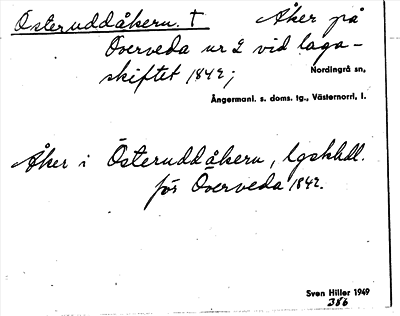 Österuddåkern. † Åker på
Överveda nr 2 vid laga-
skiftet 1842;
Nordingrå sn,
Ångermanl. s. doms. tg., Västernorrl, l.
Åker i Österuddåkern, lgskhdl.
för Överveda 1842.
Sven Hiller 1949
386